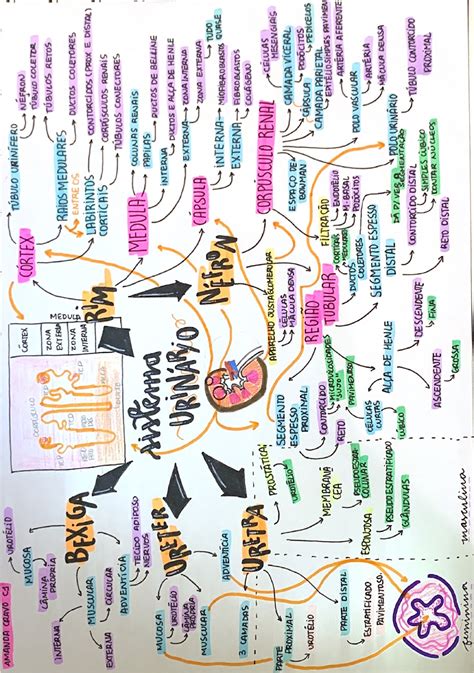 AMANDA CRAVO
sistema
URINÁRIO
RIM
CÓRTEX
TÚBULO URINÍFERO
NÉFRON
TÚBULO COLETOR
RAIOS MEDULARES
TÚBULOS RETOS
DUCTOS COLETORES
ENTRE OS
LABIRINTOS
CORTICAIS
CONTORCIDOS (PROX E DISTAL)
CORPÚSCULOS RENAIS
TÚBULOS CONECTORES
MEDULA
COLUNAS RENAIS
PAPILAS
DUCTOS DE BELLINE
INTERNA
DUCTOS E ALÇA DE HENLE
EXTERNA
ZONA INTERNA
ZONA EXTERNA
TUDO
QUASE
CÁPSULA
INTERNA
MIOFIBROBLASTOS
EXTERNA
FIBROBLASTOS
COLÁGENO
NÉFRON
CORPÚSCULO RENAL
CÉLULAS
MESENGIAIS
CAMADA VICERAL
PODÓCITOS
PEDICELOS
CÁPSULA
CAMADA PARIETAL
EPITÉLIO SIMPLES PAVIMEN
ESPAÇO DE
BOWMAN
POLO VASCULAR
ARTÉRIA AFERENTE
MÁCULA DENSA
ARTÉRIA
POLO URINÁRIO
TÚBULO CONTORCIDO
PROXIMAL
FILTRAÇÃO
ENDOTÉLIO
PODÓCITOS
APARELHO JUSTAGLOMERULAR
CÉLULAS
MÁCULA DENSA
REGIÃO
TUBULAR
DUCTOS
COLETORES
CORTICAIS
MEDULARES
SEGMENTO ESPESSO
DISTAL
CONTORCIDO DISTAL
SIMPLES CÚBICO
CONTAR NÚCLEOS
RETO DISTAL
SEGMENTO
ESPESSO
PROXIMAL
CONTORCIDO
MICROVILOSIDADES
"SUJO"
RETO
ALÇA DE HENLE
PAVIMENTOSO
CÉLULAS
CLARAS
CÚBICO
DESCENDENTE
FINA
ASCENDENTE
GROSSA
MEDULA
CÓRTEX
ZONA
EXTERNA
ZONA
INTERNA
BEXIGA
MUCOSA
UROTÉLIO
LÂMINA
PRÓPRIA
MUSCULAR
INTERNA
EXTERNA
CIRCULAR
ADVENTÍCIA
TECIDO ADIPOSO
NERVOS
URETER
MUCOSA
UROTÉLIO
LÂMINA
PRÓPRIA
MUSCULAR
3 CAMADAS
ADVENTÍCIA
URETRA
PROSTÁTICA
UROTÉLIO
MEMBRANÁ
CEA
PSEUDOESTRA
COLUNAR
ESPONJOSA
PSEUDO ESTRATIFICADO
GLÂNDULAS
masculina
PARTE
PROXIMAL
UROTÉLIO
PARTE DISTAL
ESTRATIFICADO
PAVIMENTOSO
feminina